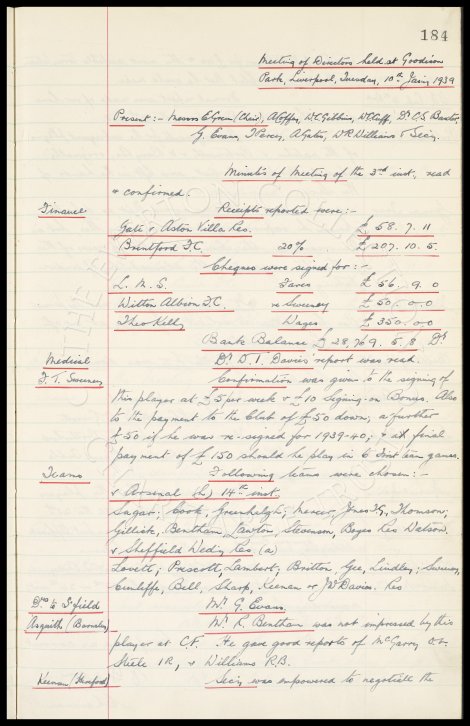 184
Meeting of Directors held at Goodison
Park, Liverpool, Tuesday, 10th Jany 1939
Present :- Messrs E. Green (Chair), A. Coffey, W.C. Gibbins, W.C. Cuff, Dr C.S. Baxter,
G. Evans, T. Percy, A. Gates, W.R. Williams & Secy.
Minutes of Meeting of the 3rd inst., read
& confirmed.
Finance Receipts reported were :-
Gate v. Aston Villa Res. £ 58. 7. 11
Brentford F.C. 20% £ 207. 10. 5.
Cheques were signed for :-
L. M. S. Fares £ 66. 9. 0
Witton Albion F.C. re Sweeney £ 50. 0. 0
Theo Kelly Wages £ 350. 0. 0
Bank Balance £ 28,769. 5. 8. Dr
Medical Dr D. I. Davies' report was read.
F. T. Sweeney Confirmation was given to the signing of
this player at £5 per week & £10 signing-on Bonus. Also
to the payment to the Club of £50 down; a further
£50 if he was re-signed for 1939-40; & a final
payment of £150 should he play in 6 First team games.
Teams Following teams were chosen :-
v Arsenal (h) 14th inst.
Sagar; Cook, Greenhalgh; Mercer, Jones T.G., Thomson;
Gillick, Bentham, Lawton, Stevenson, Boyes Res Watson.
v Sheffield Wed'y Res. (a)
Lovett; Prescott, Lambert; Britton, Gee, Lindley; Sweeney,
Cunliffe, Bell, Sharp, Keenan or J.W. Davies. Res
Drs to S'field Mr G. Evans.
Asquith (Barnsley) Mr R. Bentham was not impressed by this
player at C.F. He gave good reports of McGarry
Steele I.R., & Williams R.B.
Keenan Secy was empowered to negotiate the